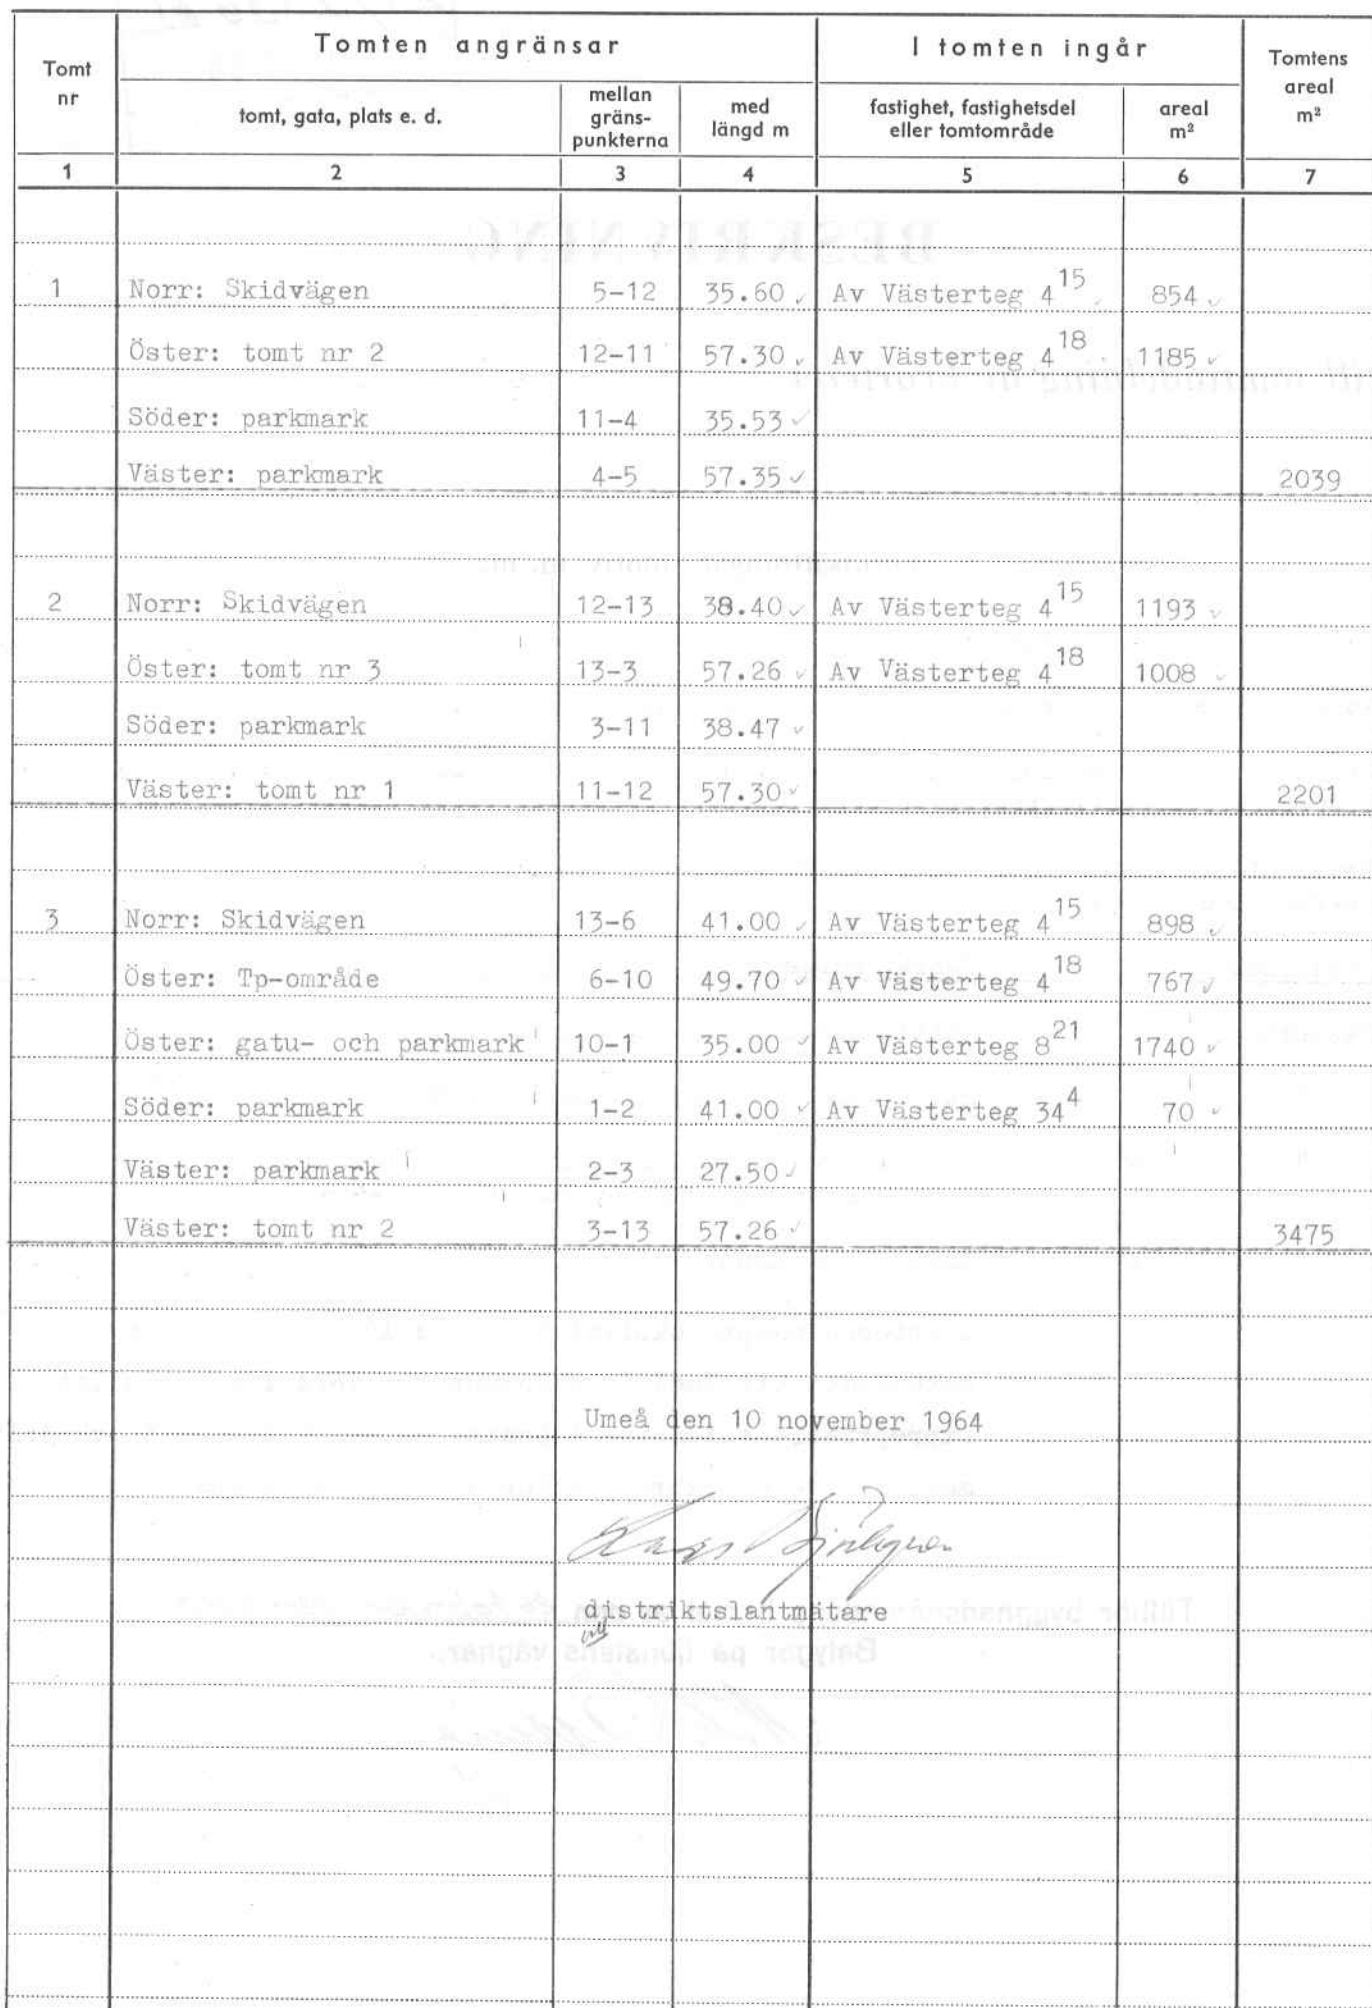 Tomt nr | Tomten angränsar | I tomten ingår | Tomtens areal m²
tomt, gata, plats e. d. | mellan gräns-punkterna | med längd m | fastighet, fastighetsdel eller tomtområde | areal m²
1 | 2 | 3 | 4 | 5 | 6 | 7
1 | Norr: Skidvägen | 5-12 | 35.60 | Av Västerteg 4¹⁵ | 854
Öster: tomt nr 2 | 12-11 | 57.30 | Av Västerteg 4¹⁸ | 1185
Söder: parkmark | 11-4 | 35.53
Väster: parkmark | 4-5 | 57.35 | 2039
2 | Norr: Skidvägen | 12-13 | 38.40 | Av Västerteg 4¹⁵ | 1193
Öster: tomt nr 3 | 13-3 | 57.26 | Av Västerteg 4¹⁸ | 1008
Söder: parkmark | 3-11 | 38.47
Väster: tomt nr 1 | 11-12 | 57.30 | 2201
3 | Norr: Skidvägen | 13-6 | 41.00 | Av Västerteg 4¹⁵ | 898
Öster: Tp-område | 6-10 | 49.70 | Av Västerteg 4¹⁸ | 767
Öster: gatu- och parkmark | 10-1 | 35.00 | Av Västerteg 8²¹ | 1740
Söder: parkmark | 1-2 | 41.00 | Av Västerteg 34⁴ | 70
Väster: parkmark | 2-3 | 27.50
Väster: tomt nr 2 | 3-13 | 57.26 | 3475
Umeå den 10 november 1964
distriktslantmätare